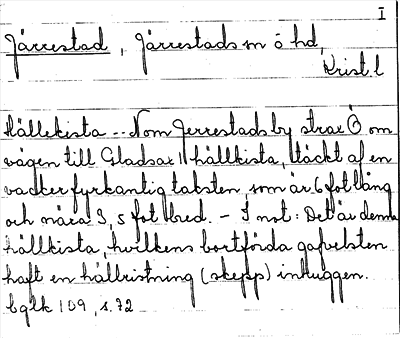 I
Järrestad, Järrestads sn ö hd,
Krist. l
Hällekista -- Nom Jerrestads by strax Ö om
vägen till Gladsax 11 hällkista, täckt af en
vacker fyrkantig taksten som är 6 fot lång
och nära 3,5 fot bred. - I not: Det är denna
hällkista, hvilkens bortförda gafvelsten
haft en hällristning (skepp) inhuggen.
Cglk 109, s. 72